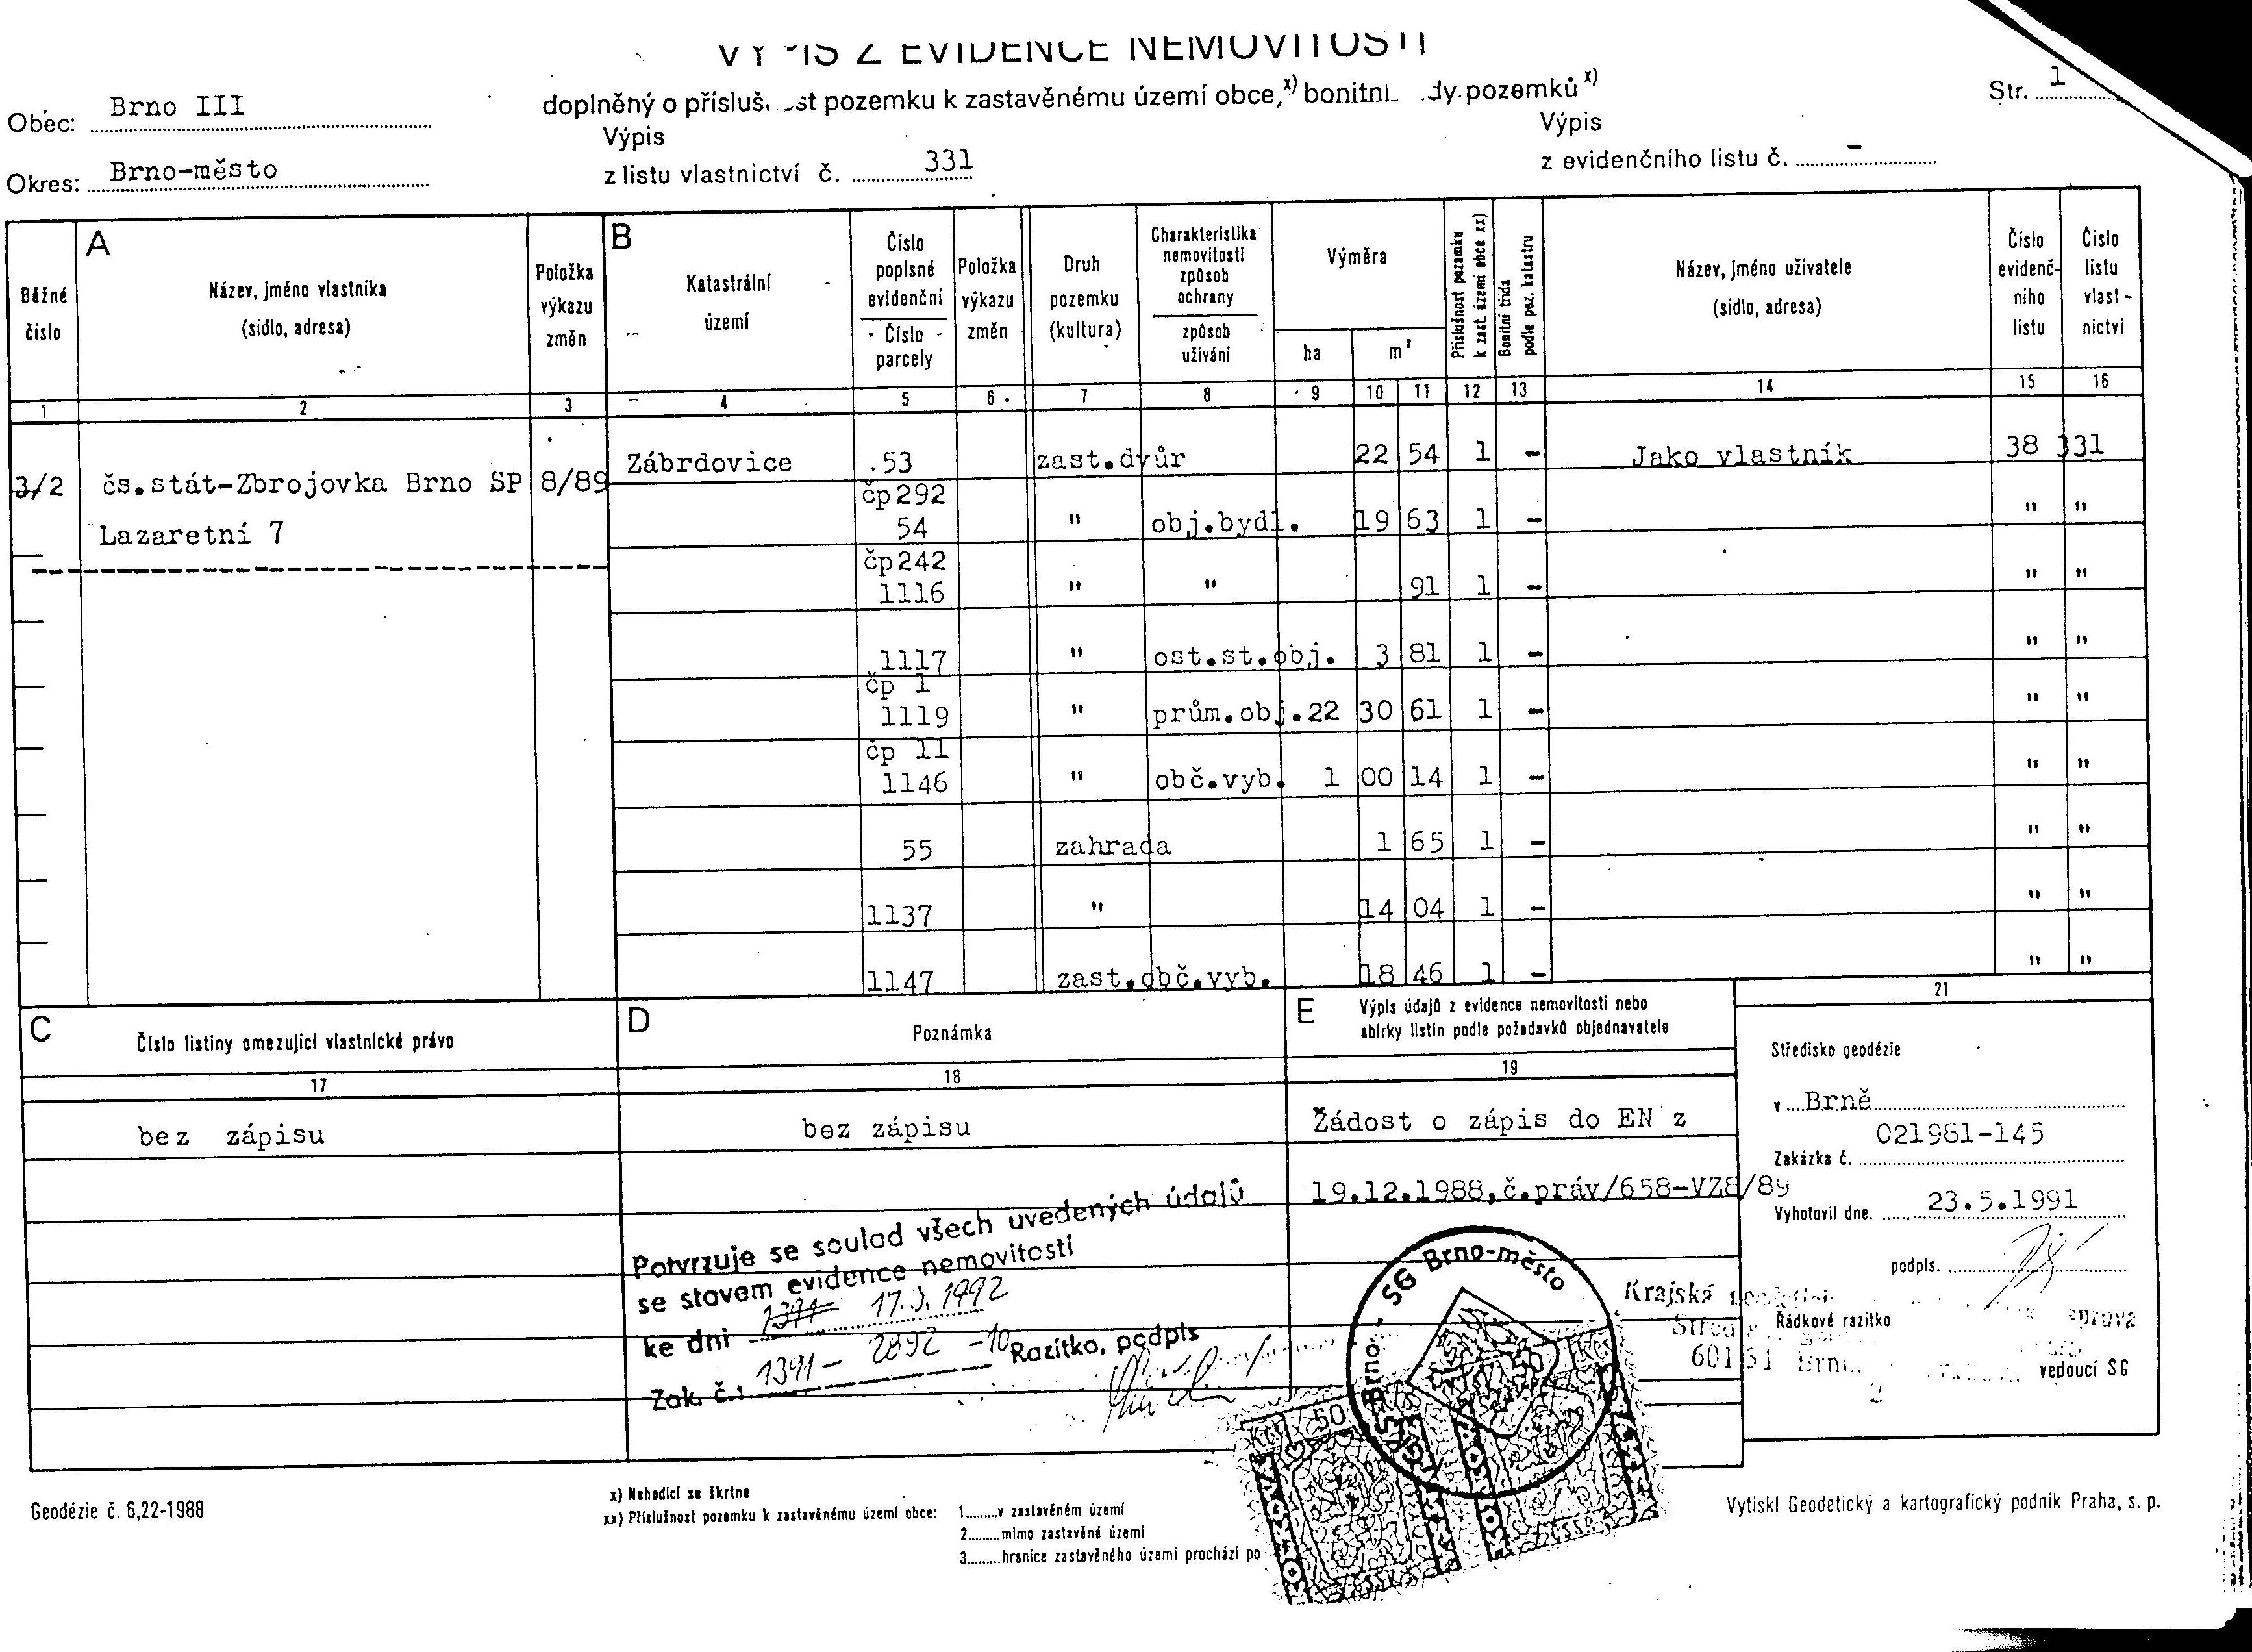 VÝPIS Z EVIDENCE NEMOVITOSTÍ
doplněný o přísluš st pozemku k zastavěnému území obce,x) bonitní dy pozemků x)
Str. 1
Obec: Brno III
Výpis
z listu vlastnictví č. 331
Výpis
z evidenčního listu č. -
Okres: Brno-město
A
Běžné číslo
Název, jméno vlastníka
(sídlo, adresa)
Položka výkazu změn
B
Katastrální území
Číslo popisné evidenční
Číslo parcely
Položka výkazu změn
Druh pozemku (kultura)
Charakteristika nemovitosti způsob ochrany
způsob užívání
Výměra
ha m²
Příslušnost pozemku k zast. území obce xx)
Bonitní třída podle poz. katastru
Název, jméno uživatele
(sídlo, adresa)
Číslo evidenč-ního listu
Číslo listu vlast-nictví
1 2 3 4 5 6 7 8 9 10 11 12 13 14 15 16
3/2 čs.stát-Zbrojovka Brno SP 8/89
Lazaretní 7
Zábrdovice .53 zast.dvůr 22 54 1 - Jako vlastník 38 331
čp292
54 " obj.bydl. 19 63 1 - " "
čp242
1116 " " 91 1 - " "
1117 " ost.st.obj. 3 81 1 - " "
čp 1
1119 " prům.obj. 22 30 61 1 - " "
čp 11
1146 " obč.vyb. 1 00 14 1 - " "
55 zahrada 1 65 1 - " "
1137 " 14 04 1 - " "
1147 zast.obč.vyb. 18 46 1 - " "
C
Číslo listiny omezující vlastnické právo
17
bez zápisu
D
Poznámka
18
bez zápisu
Potvrzuje se soulad všech uvedených údajů
se stavem evidence nemovitostí
ke dni 1391 17.3.1992
Zak. č.: 1391- 2892 -10 Razítko, podpis
E
Výpis údajů z evidence nemovitostí nebo
sbírky listin podle požadavků objednavatele
19
Žádost o zápis do EN z
19.12.1988,č.práv/658-VZ8/89
21
Středisko geodézie
v Brně
021981-145
Zakázka č.
Vyhotovil dne. 23.5.1991
podpis.
Krajská
Řádkové razítko
správa
601 51 Brno
2
vedoucí SG
KGKS Brno - SG Brno-město
KČS 50
Geodézie č. 6,22-1988
x) Nehodící se škrtne
xx) Příslušnost pozemku k zastavěnému území obce: 1.........v zastavěném území
2.........mimo zastavěné území
3.........hranice zastavěného území prochází po
Vytiskl Geodetický a kartografický podnik Praha, s. p.